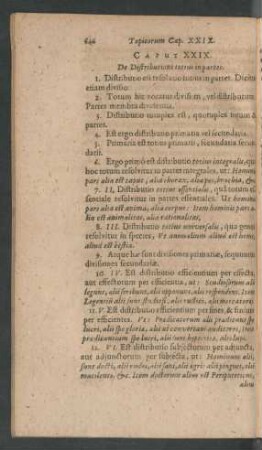 646 Topicorum Cap. XXIX.
CAPUT XXIX.
De Distributione totius in partes.
1. Distributio est resolutio totius in partes. Dicitur
etiam divisio.
2. Totum hic vocatur divisum, vel distributum
Partes membra dividentia.
3. Distributio totuplex est, quotuplex totum &
partes.
4. Est ergo distributio primaria vel secundaria.
5. Primaria est totius primarii, secundaria secundarii.
6. Ergo primò est distributio totius integralis, qua
hoc totum resolvitur in partes integrales, ut: Hominis
pars alia est caput, alia thorax, alia
7. II. Distributio totius essentialis, quâ totum essentiale
resolvitur in partes essentiales. Ut hominis
pars alia est anima, alia corpus: Item hominis pars alia
est animalitas, alia rationalitas.
8. III. Distributio totius universalis, qua genus
resolvitur in species, Ut animalium aliud est homo,
aliud est bestia.
9. Atque hæ sunt divisiones primariæ, sequuntur
divisiones secundariæ.
10. IV. Est distributio efficientium per effecta,
aut effectorum per efficientia, ut: alii
legunt, alii scribunt, alii opponunt, alii respondent. Item
alii sunt alii rustici, alii mercatores.
11. V. Est distributio efficientium per fines, & finium
per efficientes. Ut: Prædicatorum alii prædicant propter
lucri, alii gloria, alii ut convertant auditores, item
prædicantium lucri, alii sunt hypocritæ, alii
12. VI. Est distributio subjectorum per adjuncta,
aut adjunctorum per subjecta, ut: Hominum alii,
sunt docti, alii rudes, alii sani, alii ægri: alii pingues, alii
macilenti, &c. Item doctorum alius est Peripateticus,
alius